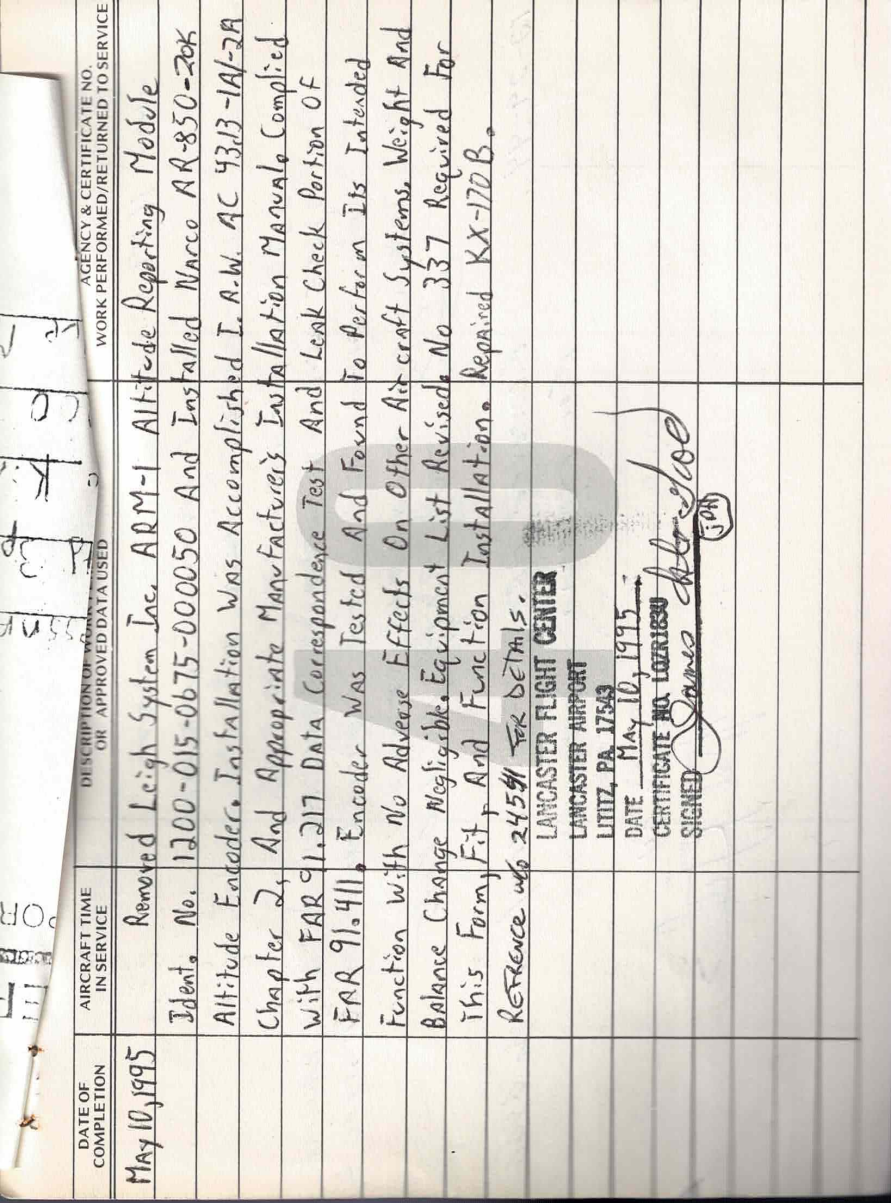 DATE OF COMPLETION
AIRCRAFT TIME IN SERVICE
DESCRIPTION OF
OR APPROVED DATA USED
AGENCY & CERTIFICATE NO.
WORK PERFORMED/RETURNED TO SERVICE
40
MAY 10, 1995 Removed Leigh System Inc. ARM-1 Altitude Reporting Module
Ident. No. 1200-015-0675-000050 And Installed Narco AR-850-20K
Altitude Encoder. Installation Was Accomplished I.A.W. AC 43.13-1A/-2A
Chapter 2, And Appropriate Manufacturer's Installation Manual. Complied
With FAR 91.217 Data Correspondence Test And Leak Check Portion Of
FAR 91.411. Encoder Was Tested And Found To Perform Its Intended
Function With No Adverse Effects On Other Aircraft Systems. Weight And
Balance Change Negligible. Equipment List Revised. No 337 Required For
This Form, Fit, And Function Installation. Repaired KX-170B.
REFRENCE W/O 24551 FOR DETAILS.
LANCASTER FLIGHT CENTER
LANCASTER AIRPORT
LITITZ, PA. 17543
DATE May 10, 1995
CERTIFICATE NO. LQZR183U
SIGNED James